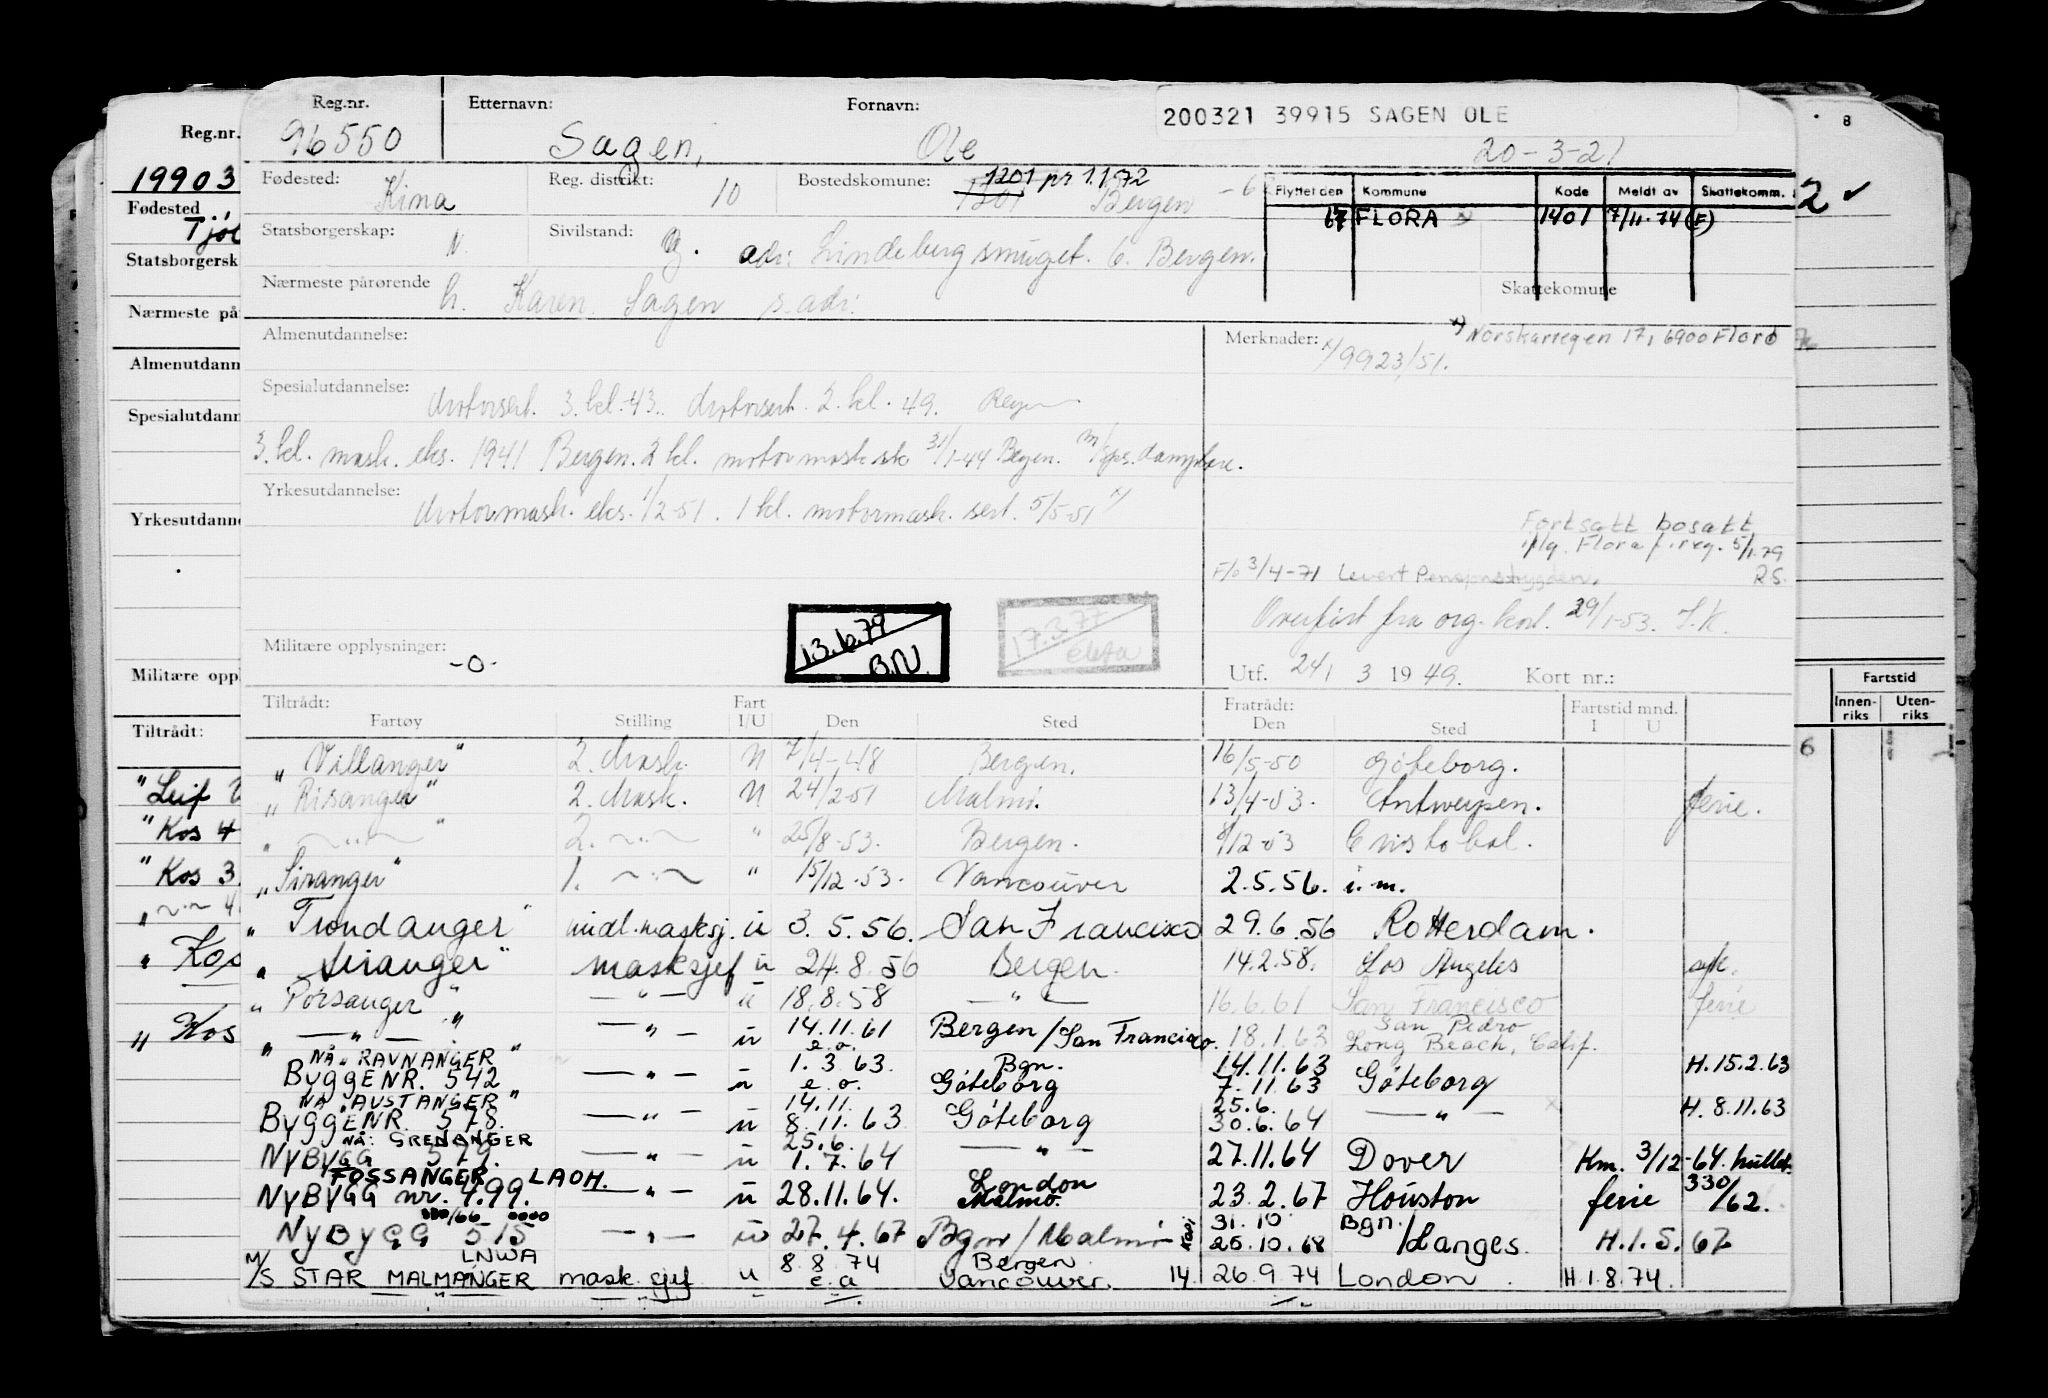 Reg.nr. Etternavn: Fornavn: 200321 39915 SAGEN OLE
96550 Sagen, Ole 20-3-21
Fødested: Kina Reg. distrikt: 10 Bostedskomune: 1201 1201 pr 1.1.72 Bergen
Flyttet den Kommune Kode Meldt av Skattekomm.
FLORA 1401 7/11.74 (F)
Statsborgerskap: N. Sivilstand: g. adr: Lindeberg smuget. 6. Bergen.
Nærmeste pårørende h. Karen Sagen s. adr. Skattekomune
Almenutdannelse: Merknader: x/ 9923/51. x) Norskarvegen 17, 6900 Florø
Spesialutdannelse: Motorsert. 3. kl.-43. Motorsert. 2. kl. 49.
3. kl. mask. eks. 1941 Bergen. 2 kl. motormask sk 31/1-44 Bergen.
Yrkesutdannelse: Motormask. eks. 1/2-51. 1 kl. motormask. sert. 5/5-51 x/
Fortsatt bosatt
iflg. Flora f.reg. 5/1.79
RS.
F/o 3/4-71 Levert Pensjonstrygden.
Overført fra org. kort. 29/1-53. J.K.
Militære opplysninger: -0- 13.6.79 B.N. 17.3.77
Utf. 24/ 3 1949. Kort nr.:
Tiltrådt: Fart Fratrådt: Fartstid mnd.
Fartøy Stilling I/U Den Sted Den Sted I U
"Villanger" 2. Mask. U 7/4-48 Bergen. 16/5-50 Göteborg.
"Risanger" 2. Mask. U 24/2-51 Malmö. 13/4-53. Antwerpen. ferie.
" ~"~ " 2. ~"~ " 25/8-53. Bergen. /12-53 Cristobal.
"Siranger" 1. ~"~ " 15/12-53. Vancouver 2.5.56. i.m.
"Trondanger" midl. masksj. u 3.5.56. San Francisco 29.6.56 Rotterdam.
"Siranger" masksjef u 24.8.56 Bergen. 14.2.58. Los Angeles syk.
"Porsanger" —"— u 18.8.58 —"— 16.6.61 San Francisco ferie
" —"— " —"— u 14.11.61 e.o. Bergen/San Francisco. 18.1.63 San Pedro Long Beach, Calif.
NÅ "RAVNANGER"
ByggENR. 542 —"— u 1.3.63. e.o. Bgn. Göteborg 14.11.63 7.11.63 Göteborg H.15.2.63
NÅ "AUSTANGER"
ByggENR. 578. —"— u 14.11. 8.11.63 Göteborg 25.6. 30.6.64 —"— H. 8.11.63
NÅ: GRENANGER
NyBygg 579. —"— u 25.6. 1.7.64 —"— 27.11.64 Dover Km. 3/12-64
FOSSANGER LAOH.
NyBYGG nr. 499. —"— u 28.11.64. London Malmö. 23.2.67 Houston ferie 330/62.
NyByGG 515 —"— u 27.4.67 Bgn/Malmö 31.10 25.10.68 Bgn./Langes. H.1.5.67
LNWA
M/S STAR MALMANGER mask.sjef u 8.8.74 e.a Bergen Vancouver. 14. 26.9.74 London. H.1.8.74.
Reg.nr.
19903
Fødested
Statsborgersk
Nærmeste på
Almenutdann
Spesialutdann
Yrkesutdanne
Militære oppl
Tiltrådt:
"Leif
"Kos 4
"Kos 3
" Kos
" Kos
8
2 ✓
Fartstid
Innen-riks Uten-riks
6